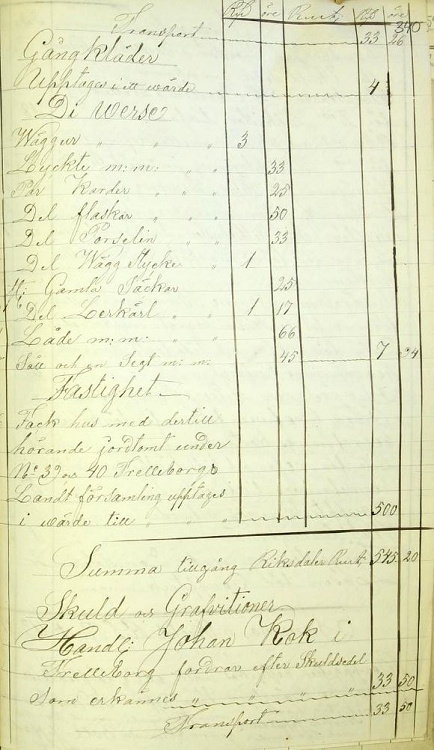 340
Rd öre Rmt Rd öre
Transport 33 26
Gångkläder
Upptages i ett wärde 4
Di werse
Waggur " " " 3
Lyckte m: m: " 33
Par Karder " " 25
Del flaskor " " 50
Del Porselin " " 33
Del Wägg stycke " 1
st: Gamla Säckar 25
Del Lerkärl " " 1 17
Låde m: m: " " 66
Såll och en m: m: 45 7 34
Fastighet
hus med dertill
hörande jordtomt under
No 39 os 40 Trelleborgs
Landt församling upptages
i wärde till " " " 500
Summa tillgång Riksdaler Rmt 545 20
Skuld os Grafvitioner
Handl: Johan Kok i
Trelleborg fordrar efter Skuldsedel
som erkännes " " " " 33 50
Transport 33 50